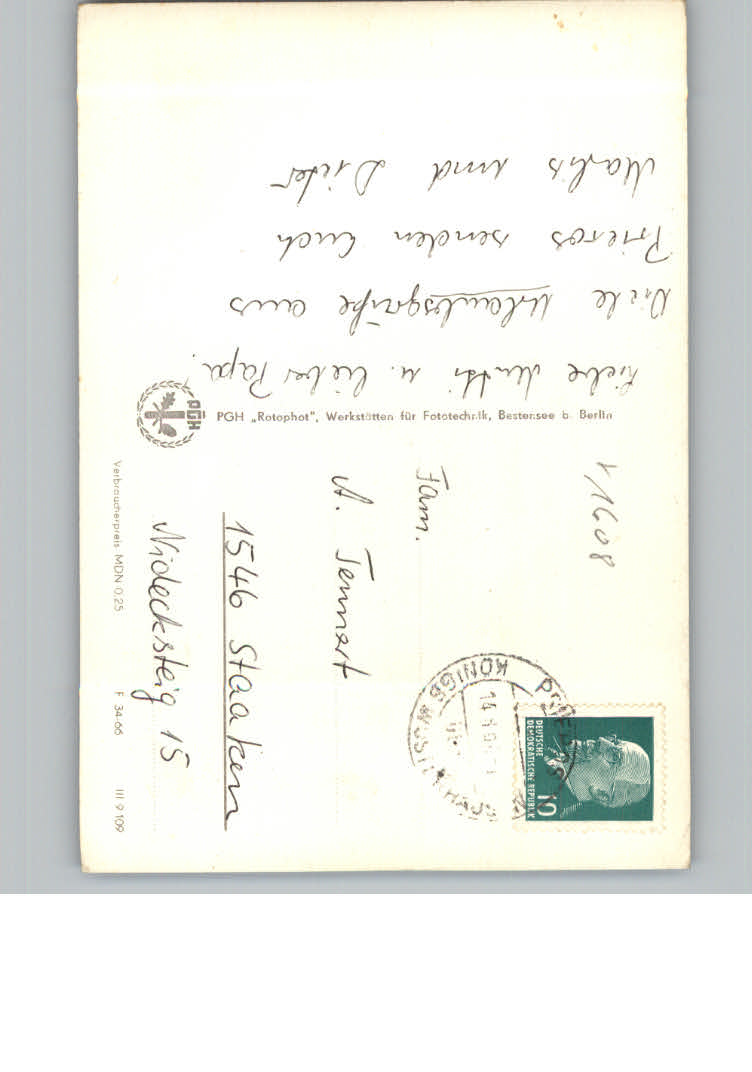 Liebe Mutti u. lieber Papa!
Viele Urlaubsgrüße aus
Prieros senden Euch
Marlis und Dieter
PGH
PGH „Rotophot“, Werkstätten für Fototechnik, Bestensee b. Berlin
11608
Fam.
A. Tennert
1546 Staaken
Nidecksteig 15
Verbraucherpreis MDN 0.25 F 34-66 III 9 109
DEUTSCHE
DEMOKRATISCHE REPUBLIK
10
PRIEROS
KÖNIGS WUSTERHAUSEN